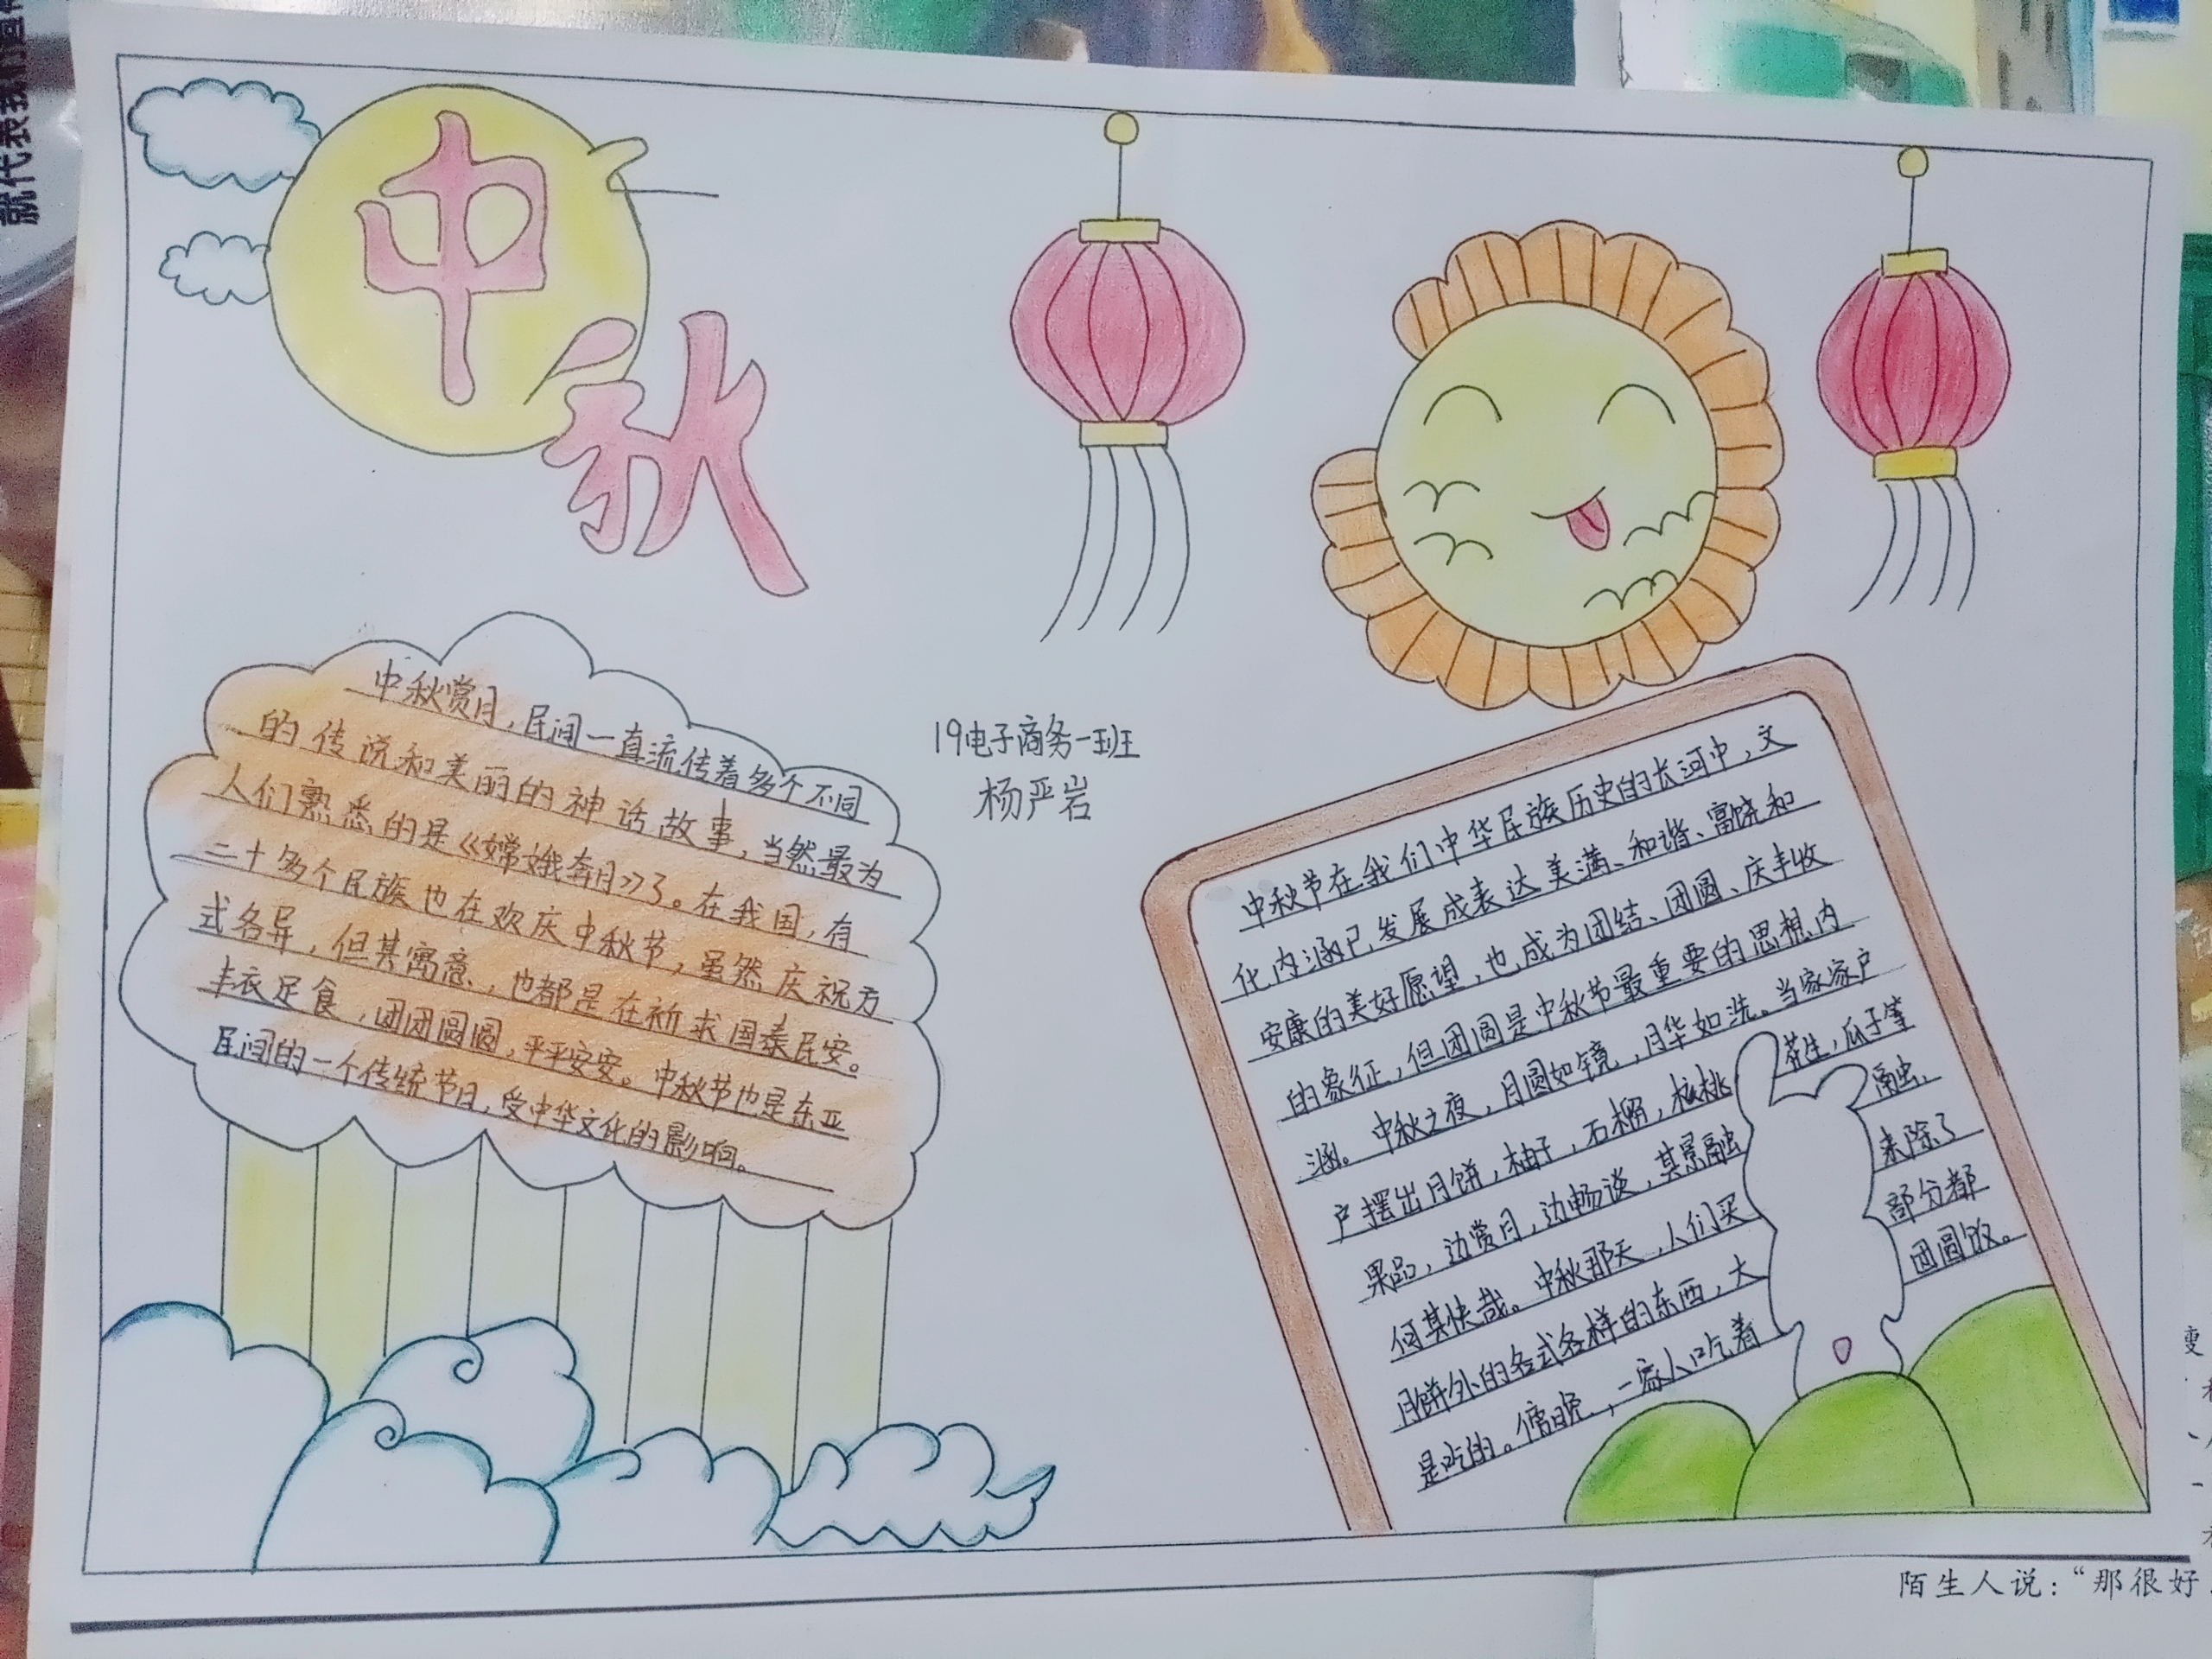 就代表我们迴
中
秋
中秋赏月，民间一直流传着多个不同
的传说和美丽的神话故事，当然最为
人们熟悉的是《嫦娥奔月》了。在我国，有
二十多个民族也在欢庆中秋节，虽然庆祝方
式各异，但其寓意，也都是在祈求国泰民安。
丰衣足食，团团圆圆，平平安安。中秋节也是东亚
民间的一个传统节日，受中华文化的影响。
19电子商务一班
杨严岩
中秋节在我们中华民族历史的长河中，文
化内涵已发展成表达美满、和谐、富饶和
安康的美好愿望，也成为团结、团圆、庆丰收
的象征，但团圆是中秋节最重要的思想内
涵。中秋之夜，月圆如镜，月华如洗。当家家户
户摆出月饼，柚子，石榴，核桃 花生，瓜子等
果品，边赏月，边畅谈，其景融 融，
何其快哉。中秋那天，人们买 来除了
月饼外的各式各样的东西，大 部分都
是吃的。傍晚，一家人吃着 团圆饭。
陌生人说：“那很好